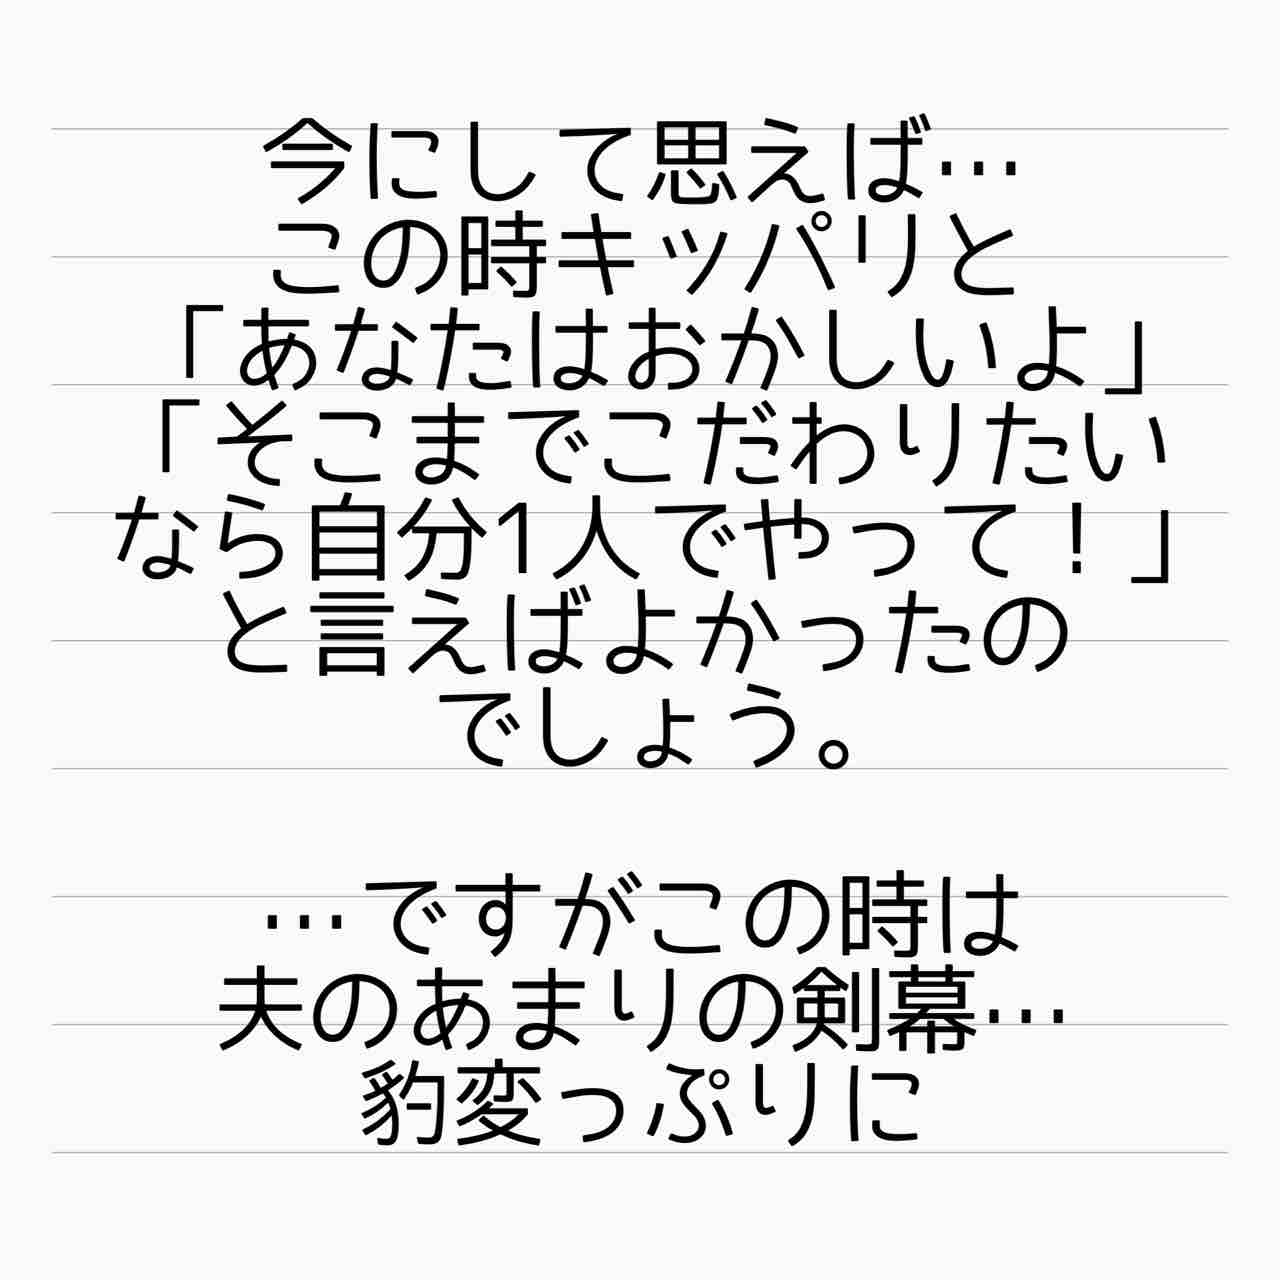 今にして思えば…
この時キッパリと
「あなたはおかしいよ」
「そこまでこだわりたい
なら自分1人でやって！」
と言えばよかったの
でしょう。
…ですがこの時は
夫のあまりの剣幕…
豹変っぷりに